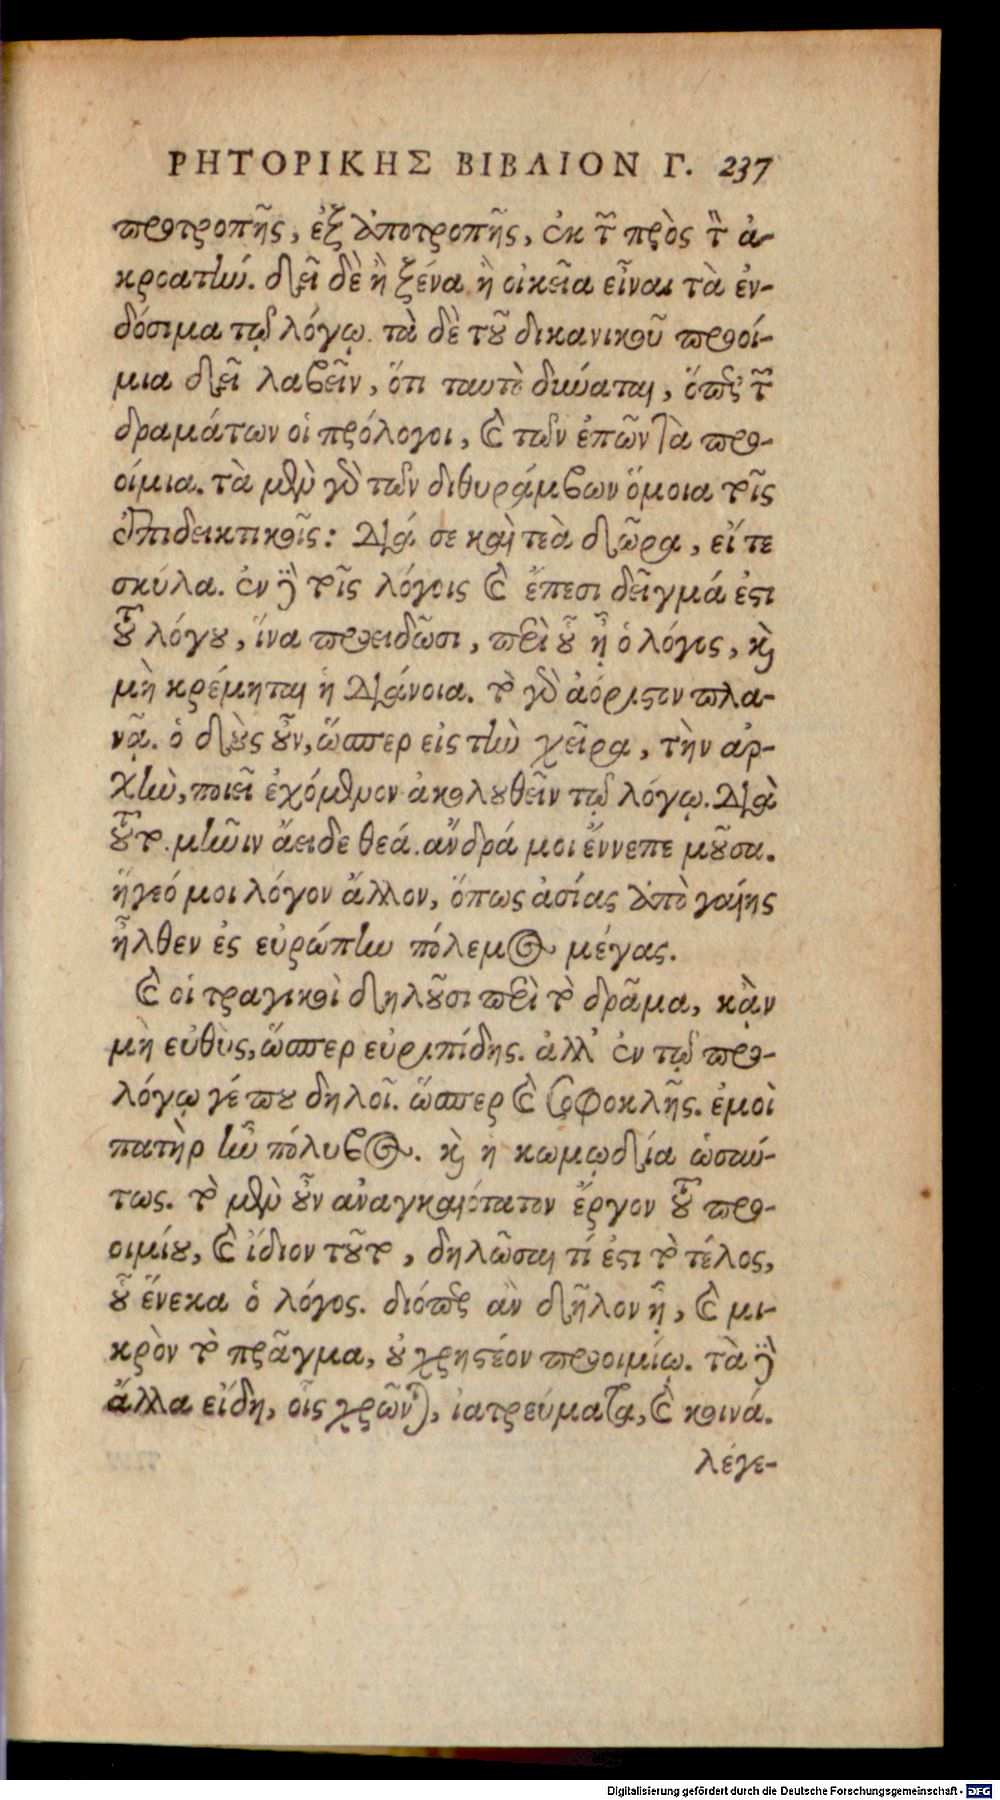 ΡΗΤΟΡΙΚΗΣ ΒΙΒΛΙΟΝ Γ. 237
προτροπῆς, ἐξ ἀποτροπῆς, ἐκ τῶν πρὸς τὸν ἀ-
κροατὴν. δεῖ δὲ ἢ ξένα ἢ οἰκεῖα εἶναι τὰ ἐν-
δόσιμα τῷ λόγῳ. τὰ δὲ τοῦ δικανικοῦ προοί-
μια δεῖ λαβεῖν, ὅτι ταυτὸ δύναται, ὅπερ τῶν
δραμάτων οἱ πρόλογοι, καὶ τῶν ἐπῶν τὰ προ-
οίμια. τὰ μὲν γὰρ τῶν διθυράμβων ὅμοια τοῖς
ἐπιδεικτικοῖς: Διά σε καὶ τεὰ δῶρα, εἴ τε
σκύλα. ἐν δὲ τοῖς λόγοις καὶ ἔπεσι δεῖγμά ἐστι
τοῦ λόγου, ἵνα προειδῶσι, περὶ οὗ ᾖ ὁ λόγος, καὶ
μὴ κρέμηται ἡ διάνοια. τὸ γὰρ ἀόριστον πλα-
νᾷ. ὁ δοὺς οὖν, ὥσπερ εἰς τὴν χεῖρα, τὴν ἀρ-
χὴν, ποιεῖ ἐχόμενον ἀκολουθεῖν τῷ λόγῳ. Διὰ
τοῦτο. μῆνιν ἄειδε θεά. ἄνδρά μοι ἔννεπε μοῦσα.
ἥγεό μοι λόγον ἄλλον, ὅπως ἀσίας ἀπὸ γαίης
ἦλθεν ἐς εὐρώπην πόλεμος μέγας.
καὶ οἱ τραγικοὶ δηλοῦσι περὶ τὸ δρᾶμα, κἂν
μὴ εὐθὺς, ὥσπερ εὐριπίδης. ἀλλ' ἐν τῷ προ-
λόγῳ γέ που δηλοῖ. ὥσπερ καὶ Σοφοκλῆς. ἐμοὶ
πατὴρ ἦν πόλυβος. καὶ ἡ κωμῳδία ὡσαύ-
τως. τὸ μὲν οὖν ἀναγκαιότατον ἔργον τοῦ προ-
οιμίου, καὶ ἴδιον τοῦτο, δηλῶσαι τί ἐστι τὸ τέλος,
οὗ ἕνεκα ὁ λόγος. διόπερ ἂν δῆλον ᾖ, καὶ μι-
κρὸν τὸ πρᾶγμα, οὐ χρηστέον προοιμίῳ. τὰ δὲ
ἄλλα εἴδη, οἷς χρῶνται, ἰατρεύματα, καὶ κοινά.
λέγε-
Digitalisierung gefördert durch die Deutsche Forschungsgemeinschaft - DFG